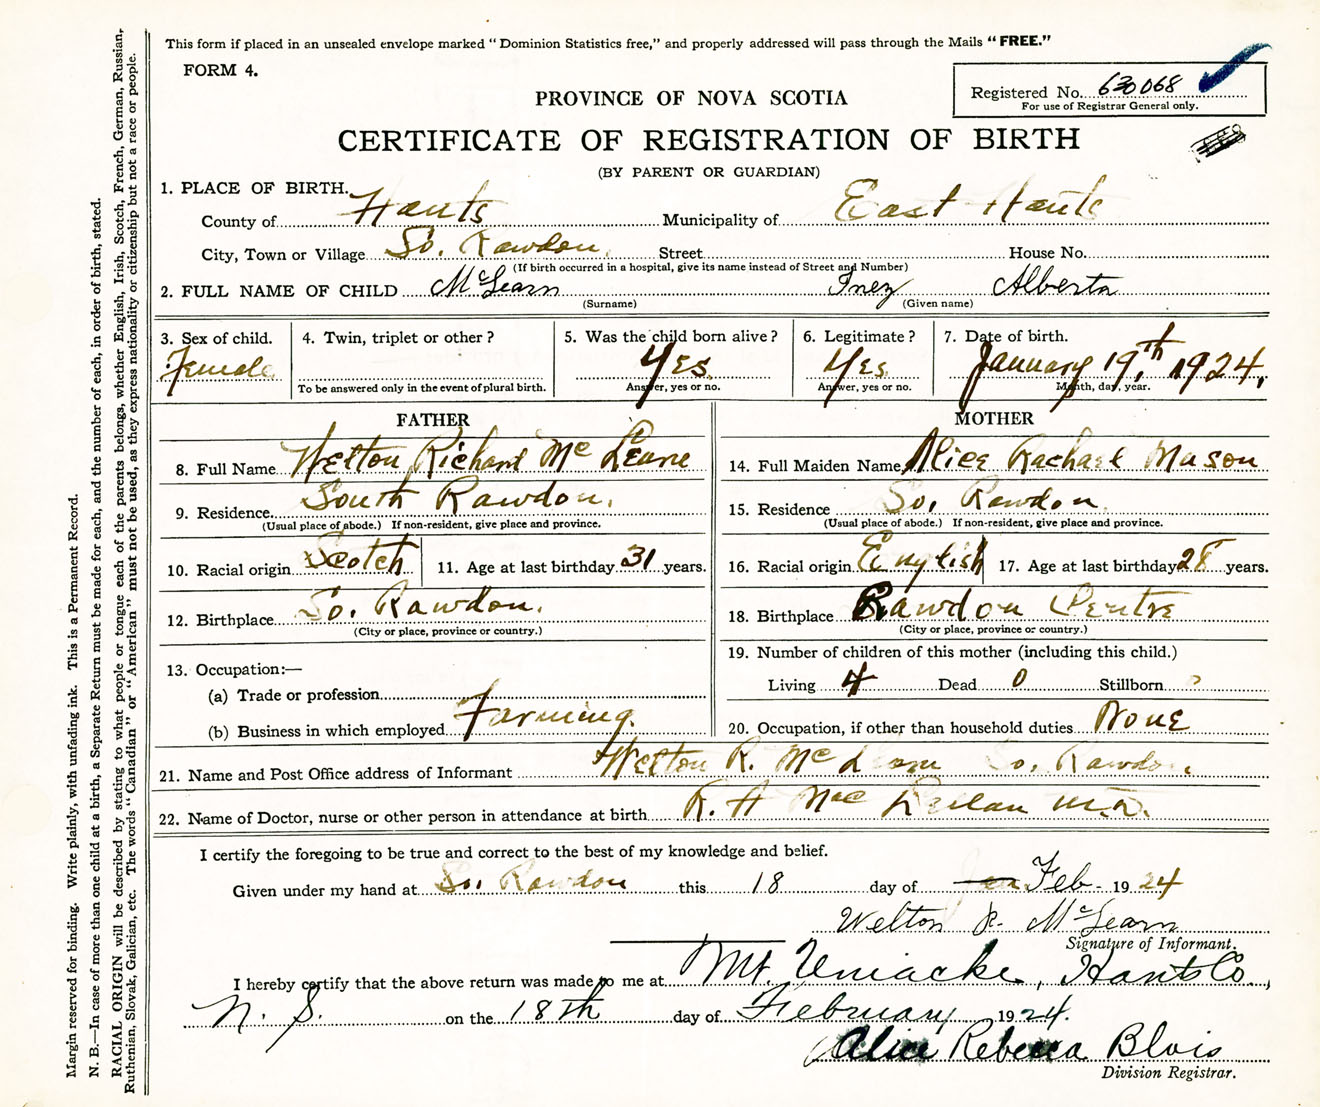 This form if placed in an unsealed envelope marked "Dominion Statistics free," and properly addressed will pass through the Mails "FREE."
FORM 4.
Registered No. 630068
For use of Registrar General only.
PROVINCE OF NOVA SCOTIA
CERTIFICATE OF REGISTRATION OF BIRTH
(BY PARENT OR GUARDIAN)
1. PLACE OF BIRTH.
County of Hants Municipality of East Hants
City, Town or Village So. Rawdon. Street House No.
(If birth occurred in a hospital, give its name instead of Street and Number)
2. FULL NAME OF CHILD McLearn Inez Alberta
(Surname) (Given name)
3. Sex of child. 4. Twin, triplet or other? 5. Was the child born alive? 6. Legitimate? 7. Date of birth.
Female Yes Yes January 19th, 1924.
To be answered only in the event of plural birth. Answer, yes or no. Answer, yes or no. Month, day, year.
FATHER
8. Full Name Welton Richard Mc Learne
9. Residence South Rawdon.
(Usual place of abode.) If non-resident, give place and province.
10. Racial origin Scotch 11. Age at last birthday 31 years.
12. Birthplace So. Rawdon.
(City or place, province or country.)
13. Occupation:—
(a) Trade or profession
(b) Business in which employed Farming.
MOTHER
14. Full Maiden Name Alice Rachael Mason
15. Residence So. Rawdon
(Usual place of abode.) If non-resident, give place and province.
16. Racial origin English 17. Age at last birthday 28 years.
18. Birthplace Rawdon Centre
(City or place, province or country.)
19. Number of children of this mother (including this child.)
Living 4 Dead 0 Stillborn ?
20. Occupation, if other than household duties None
21. Name and Post Office address of Informant Welton R. Mc Learn So. Rawdon.
22. Name of Doctor, nurse or other person in attendance at birth R. A Mac Lellan M.D.
I certify the foregoing to be true and correct to the best of my knowledge and belief.
Given under my hand at So. Rawdon this 18 day of Feb - 1924
Welton R. McLearn
Signature of Informant.
I hereby certify that the above return was made to me at Mt. Uniacke, Hants Co.,
N. S. on the 18th day of February 1924.
Alice Rebecca Blois
Division Registrar.
Margin reserved for binding. Write plainly, with unfading ink. This is a Permanent Record.
N. B.—In case of more than one child at a birth, a Separate Return must be made for each, and the number of each, in order of birth, stated.
RACIAL ORIGIN will be described by stating to what people or tongue each of the parents belongs, whether English, Irish, Scotch, French, German, Russian,
Ruthenian, Slovak, Galician, etc. The words "Canadian" or "American" must not be used, as they express nationality or citizenship but not a race or people.